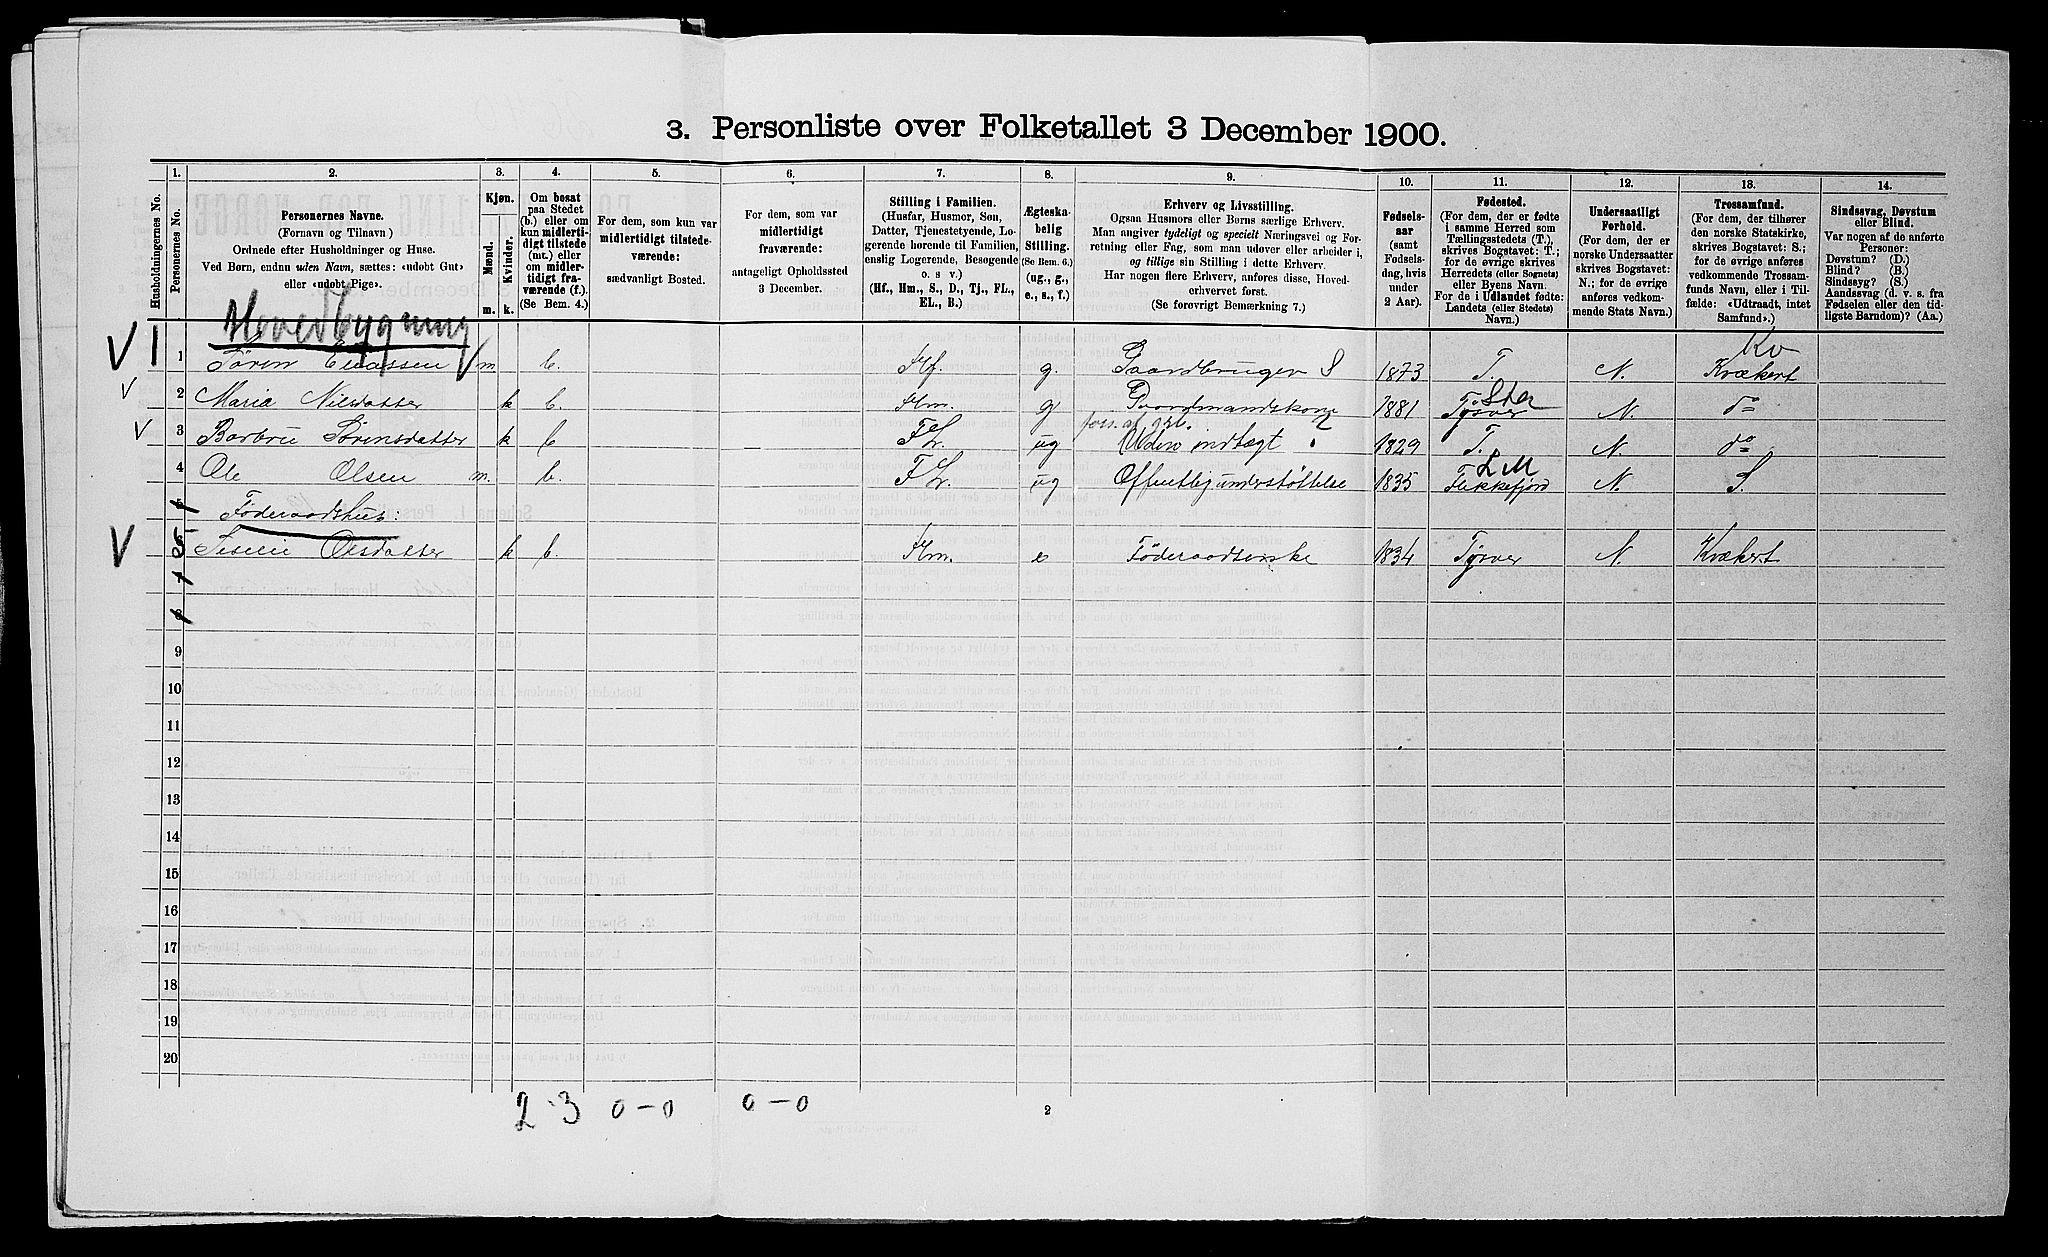 3. Personliste over Folketallet 3 December 1900.
Husholdningernes No.
1.
Personernes No.
2.
Personernes Navne.
(Fornavn og Tilnavn.)
Ordnede efter Husholdninger og Huse.
Ved Børn, endnu uden Navn, sættes: «udøbt Gut»
eller «udøbt Pige».
3.
Kjøn.
Mænd.
Kvinder.
m. k.
4.
Om bosat
paa Stedet
(b.) eller om
kun midlerti-
digt tilstede
(mt.) eller
om midler-
tidigt fra-
værende (f.).
(Se Bem. 4.)
5.
For dem, som kun var
midlertidigt tilstede-
værende:
sædvanligt Bosted.
6.
For dem, som var
midlertidigt
fraværende:
antageligt Opholdssted
3 December.
7.
Stilling i Familien.
(Husfar, Husmor, Søn,
Datter, Tjenestetyende, Lo-
gerende hørende til Familien,
enslig Logerende, Besøgende
o. s v.)
(Hf., Hm., S., D., Tj., FL.,
EL., B.)
8.
Ægteska-
belig
Stilling.
(Se Bem. 6.)
(ug., g.,
e., s., f.)
9.
Erhverv og Livsstilling.
Ogsaa Husmors eller Børns særlige Erhverv.
Man angiver tydeligt og specielt Næringsvei og For-
retning eller Fag, som man udøver eller arbeider i,
og tillige sin Stilling i dette Erhverv.
Har nogen flere Erhverv, anføres disse, Hoved-
erhvervet først.
(Se forøvrigt Bemærkning 7.)
10.
Fødsels-
aar
(samt
Fødsels-
dag, hvis
under
2 Aar).
11.
Fødested.
(For dem, der er fødte
i samme Herred som
Tællingsstedets (T.),
skrives Bogstavet: T.;
for de øvrige skrives
Herredets (eller Sognets)
eller Byens Navn.
For de i Udlandet fødte:
Landets (eller Stedets)
Navn.)
12.
Undersaatligt
Forhold.
(For dem, der er
norske Undersaatter
skrives Bogstavet:
N.; for de øvrige
anføres vedkom-
mende Stats Navn.)
13.
Trossamfund.
(For dem, der tilhører
den norske Statskirke,
skrives Bogstavet: S.;
for de øvrige anføres
vedkommende Trossam-
funds Navn, eller i Til-
fælde: «Udtraadt, intet
Samfund».)
14.
Sindssvag, Døvstum
eller Blind.
Var nogen af de anførte
Personer:
Døvstum? (D.)
Blind? (B.)
Sindssyg? (S.)
Aandssvag (d. v. s. fra
Fødselen eller den tid-
ligste Barndom)? (Aa.)
Hovedbygning
V 1 1 Sören Eliassen V m. b. Hf. g. Gaardbruger S 1873 T. N. Kvækert Kv
V 2 Maria Nilsdatter k b. Hm. g Gaardmandskone 1881 Tysver Sta N. do
fors. af
V 3 Barbru Sörensdatter k b FL. ug indtægt 1829 T. N. do
4 Ole Olsen m. b. FL. ug Offentlig understöttelse 1835 Flekkefjord L M N. S.
5 Föderaadshus:
V 6 5 Olsdatter k b. Hm. e Föderaadsenke 1834 Tysver N. Kvækert
7
8
9
10
11
12
13
14
15
16
17
18
19
20
2-3 0-0 0-0
2